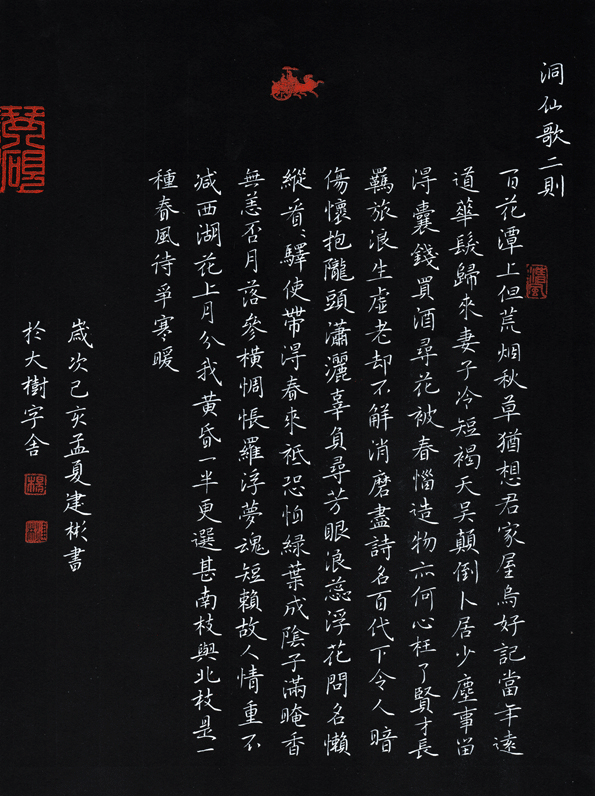 洞仙歌二則
百花潭上但荒烟秋草猶想君家屋烏好記當年遠
道華髮歸來妻子冷短褐天吳顛倒卜居少塵事留
得囊錢買酒尋花被春惱造物亦何心枉了賢才長
羈旅浪生虛老却不解消磨盡詩名百代下令人暗
傷懷抱隴頭瀟灑辜負尋芳眼浪蕊浮花問名懶
縱看、驛使帶得春來衹恐怕緑葉成陰子滿晻香
無恙否月落參橫惆悵羅浮夢魂短賴故人情重不
減西湖花上月分我黃昏一半更選甚南枝與北枝是一
種春風待爭寒暖
歲次己亥孟夏建彬書
於大樹字舍